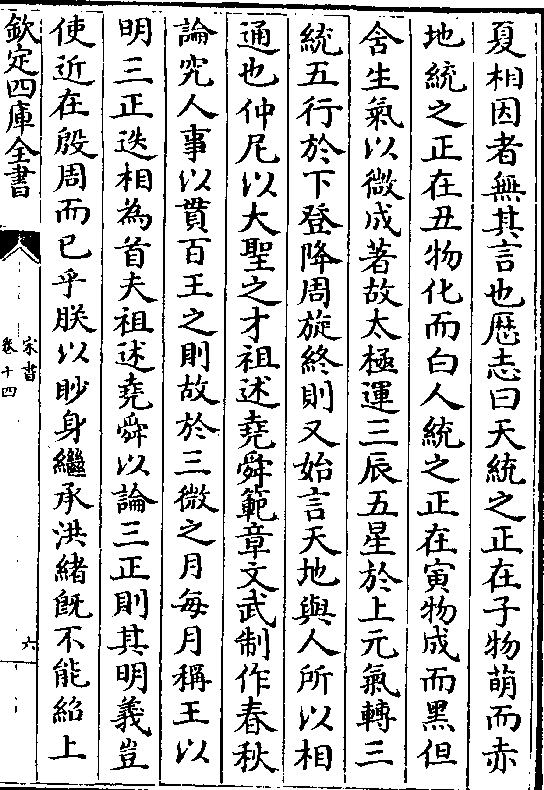 夏相因者無其言也厯志曰天統之正在子物萌而赤
地統之正在丑物化而白人統之正在寅物成而黑但
含生氣以微成著故太極運三辰五星於上元氣轉三
統五行於下登降周旋終則又始言天地與人所以相
通也仲尼以大聖之才祖述堯舜範章文武制作春秋
論究人事以貫百王之則故於三微之月每月稱王以
明三正迭相為首夫祖述堯舜以論三正則其明義豈
使近在殷周而已乎朕以眇身繼承洪緒旣不能紹上
欽定四庫全書
宋書
卷十四
六